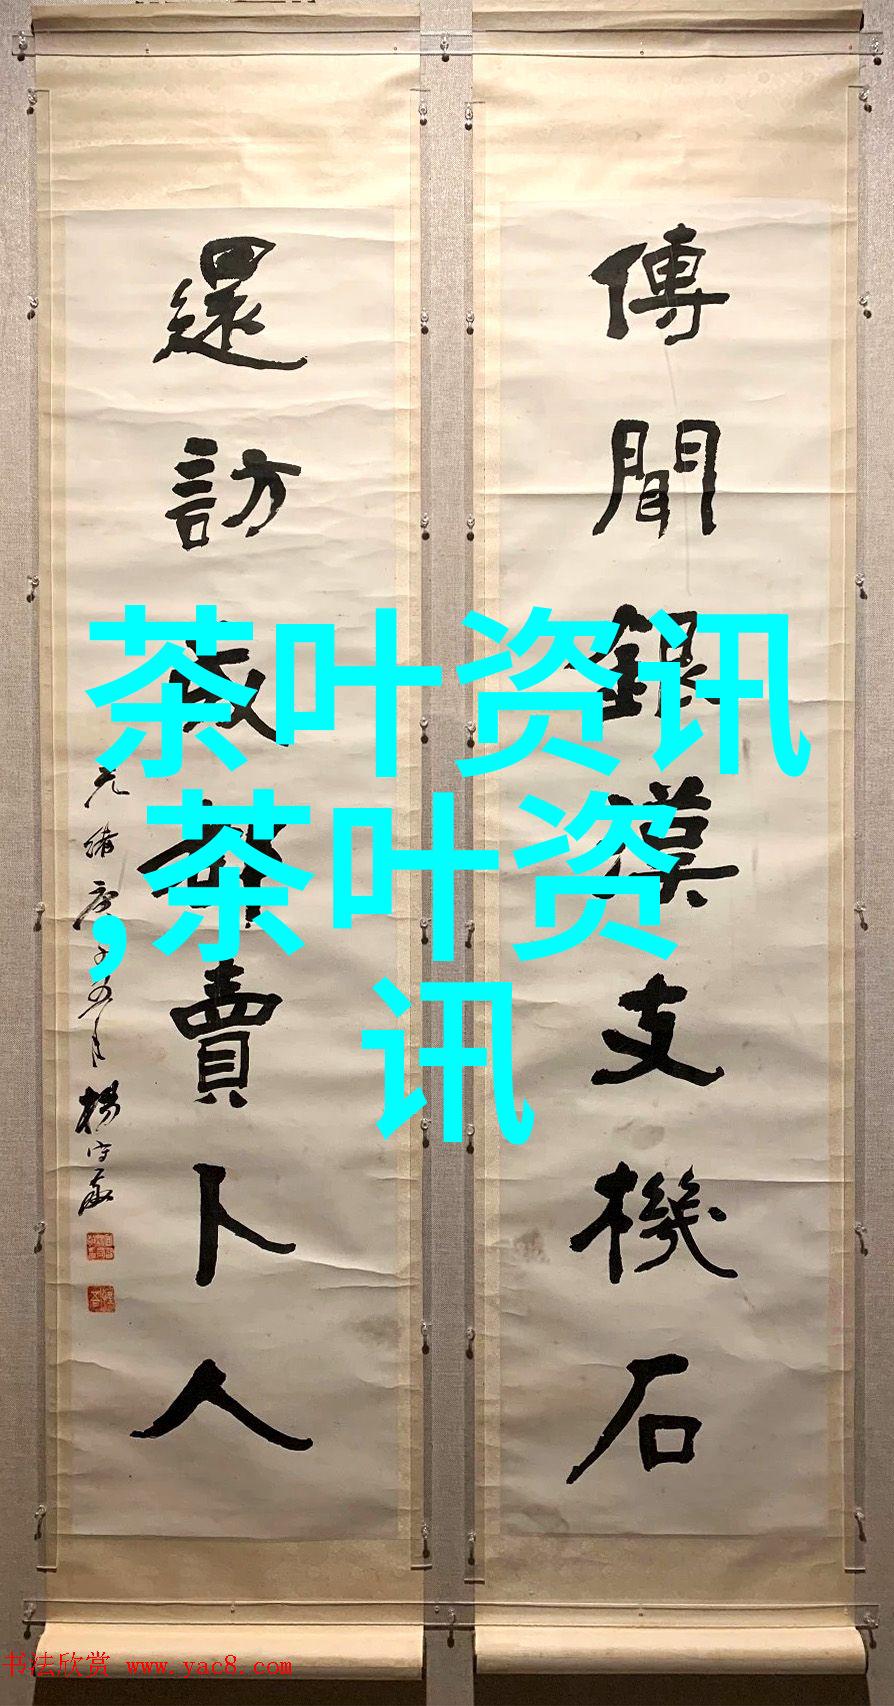 傳聞銀漢支機石
還訪成都賣卜人
光緒庚子五月楊守敬
茶叶资讯
,茶叶资
讯
书法欣赏 www.yac8.com